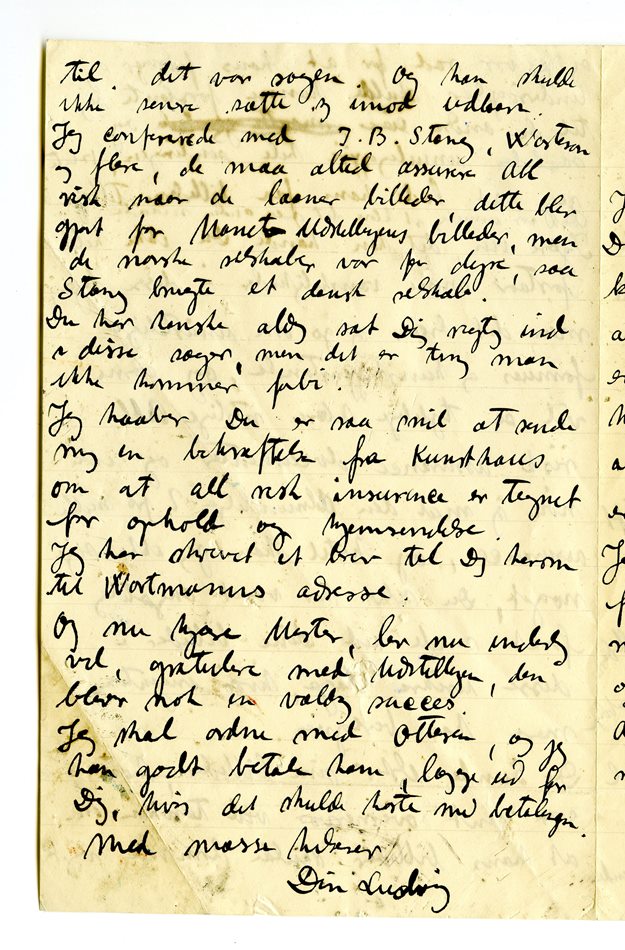 til det var sagen og han skulde
ikke senere sætte sig imod udlaan.
Jeg confererede med J. B. Stang, Wartmann
og flere, de maa altid assurere all
risk naar de laaner billeder, dette blev
gjort for Manet Udstillingens billeder, men
de norske selskaber var for dyre, saa
Stang brugte et dansk selskab.
Du har kanske aldrig sat Dig rigtig ind
i disse sager, men det er ting man
ikke kommer forbi.
Jeg haaber Du er saa snil at sende
mig en bekræftelse fra Kunsthaus
om at all risk insurence er tegnet
for ophold og hjemsendelse.
Jeg har skrevet et brev til Dig herom
til Wortmanns adresse.
Og nu kjære Mester, lev nu inderlig
vel, gratulere med Udstillingen, den
bliver nok en vældig succes.
Jeg skal ordne med Ottesen, og jeg
kan godt betale ham, lægge ud for
Dig, hvis det skulde haste med betalingen.
Med masse hilsener
Din Ludvig